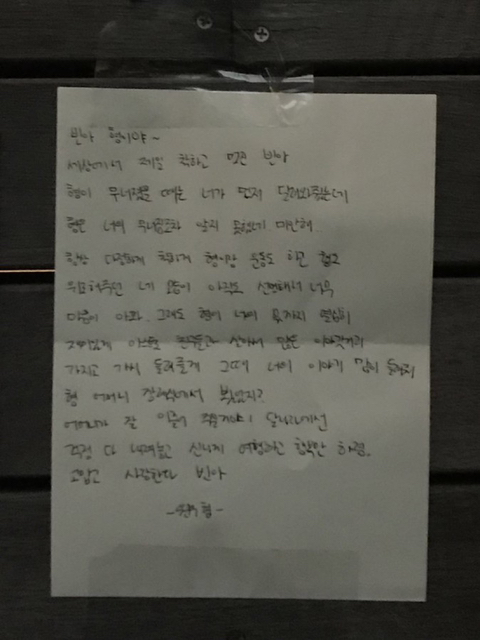 빈아 형이야~
세상에서 제일 착하고 멋진 빈아
형이 무너졌을 때는 너가 먼저 달려와줬는데
형은 너의 무너짐조차 알지 못했던게 미안해..
항상 다정하게 착하게 형이랑 운동도 하면 형보고
웃어주던 네 모습이 아직도 선명해서 너무
마음이 아파.. 그래도 형이 너의 몫까지 열심히
재미있게 아로하 분들과 살아서 많은 이야깃거리
가지고 가서 들려줄게 그때 너의 이야기 많이 들려줘
형 어머니 장례식에서 봤었지?
어머니가 잘 이끌어 주실거야! 달나라에선
걱정 다 내려놓고 신나게 여행하고 행복만 하렴.
고맙고 사랑한다 빈아
형 -